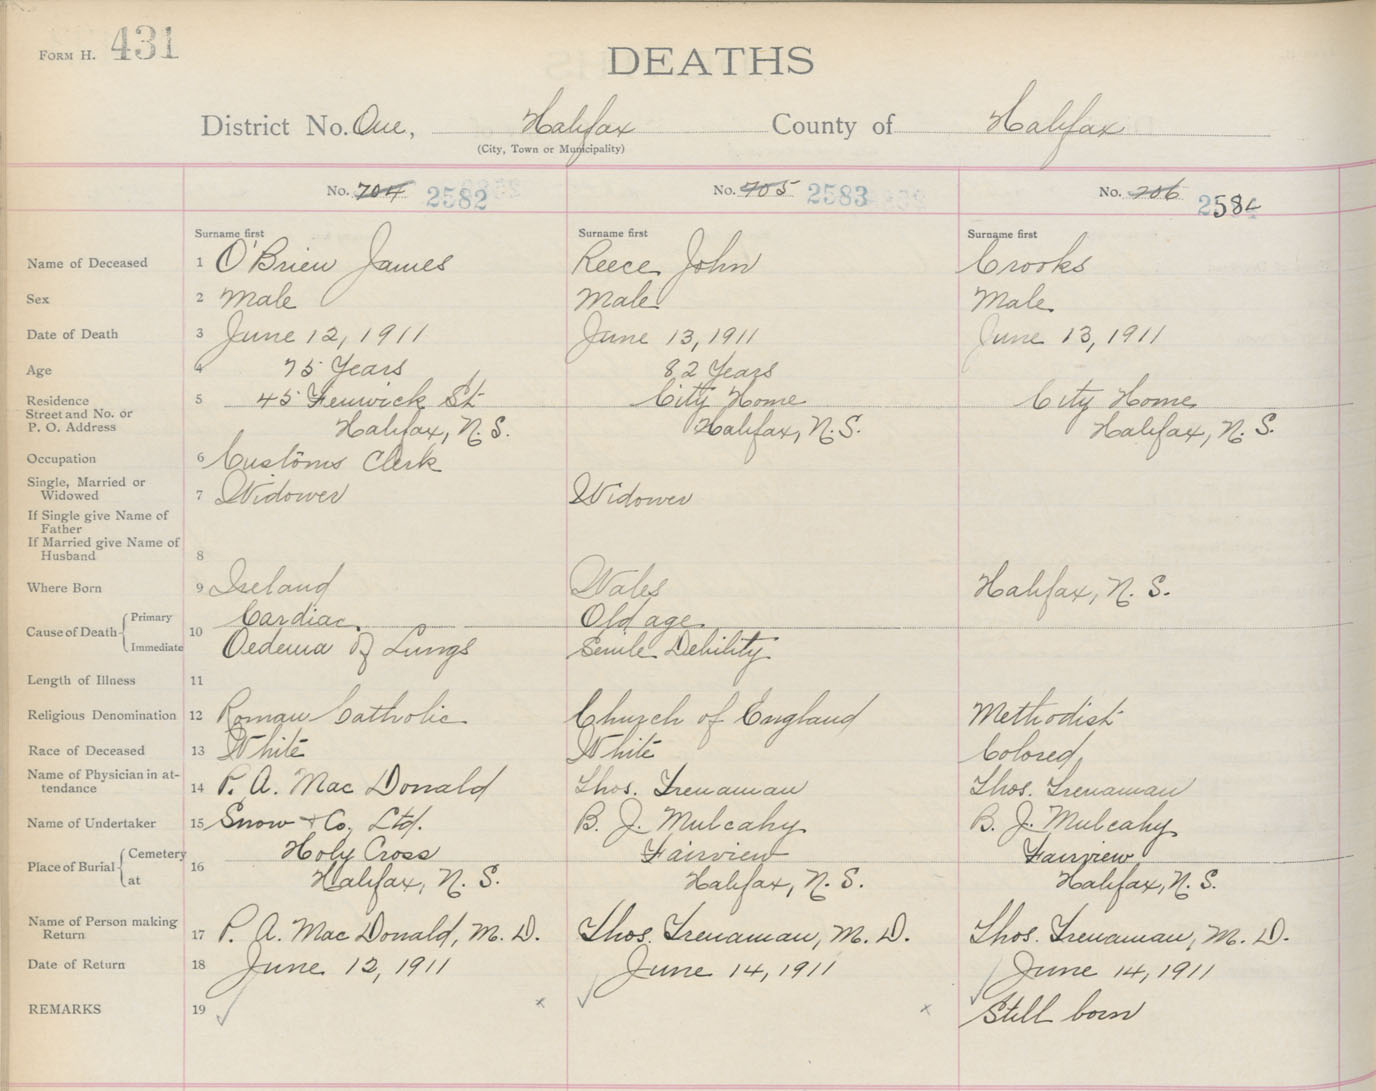 FORM H. 431
DEATHS
District No. One, Halifax County of Halifax
(City, Town or Municipality)
No. 704 2582 No. 705 2583 No. 706 2584
Surname first Surname first Surname first
Name of Deceased 1 O'Brien James Reece John Crooks
Sex 2 Male Male Male
Date of Death 3 June 12, 1911 June 13, 1911 June 13, 1911
Age 4 75 Years 82 Years
Residence 5 45 Fenwick St City Home City Home
Street and No. or
P. O. Address Halifax, N. S. Halifax, N. S. Halifax, N. S.
Occupation 6 Customs Clerk
Single, Married or
Widowed 7 Widower Widower
If Single give Name of
Father
If Married give Name of
Husband 8
Where Born 9 Ireland Wales Halifax, N. S.
Cause of Death 10 Primary Cardiac Old age
Immediate Oedema of Lungs Senile Debility
Length of Illness 11
Religious Denomination 12 Roman Catholic Church of England Methodist
Race of Deceased 13 White White Colored
Name of Physician in at-
tendance 14 P. A. Mac Donald Thos. Trenaman Thos. Trenaman
Name of Undertaker 15 Snow + Co. Ltd. B. J. Mulcahy B. J. Mulcahy
Place of Burial 16 Cemetery Holy Cross Fairview Fairview
at Halifax, N. S. Halifax, N. S. Halifax, N. S.
Name of Person making
Return 17 P. A. Mac Donald, M. D. Thos. Trenaman, M. D. Thos. Trenaman, M. D.
Date of Return 18 June 12, 1911 June 14, 1911 June 14, 1911
REMARKS 19 Still born